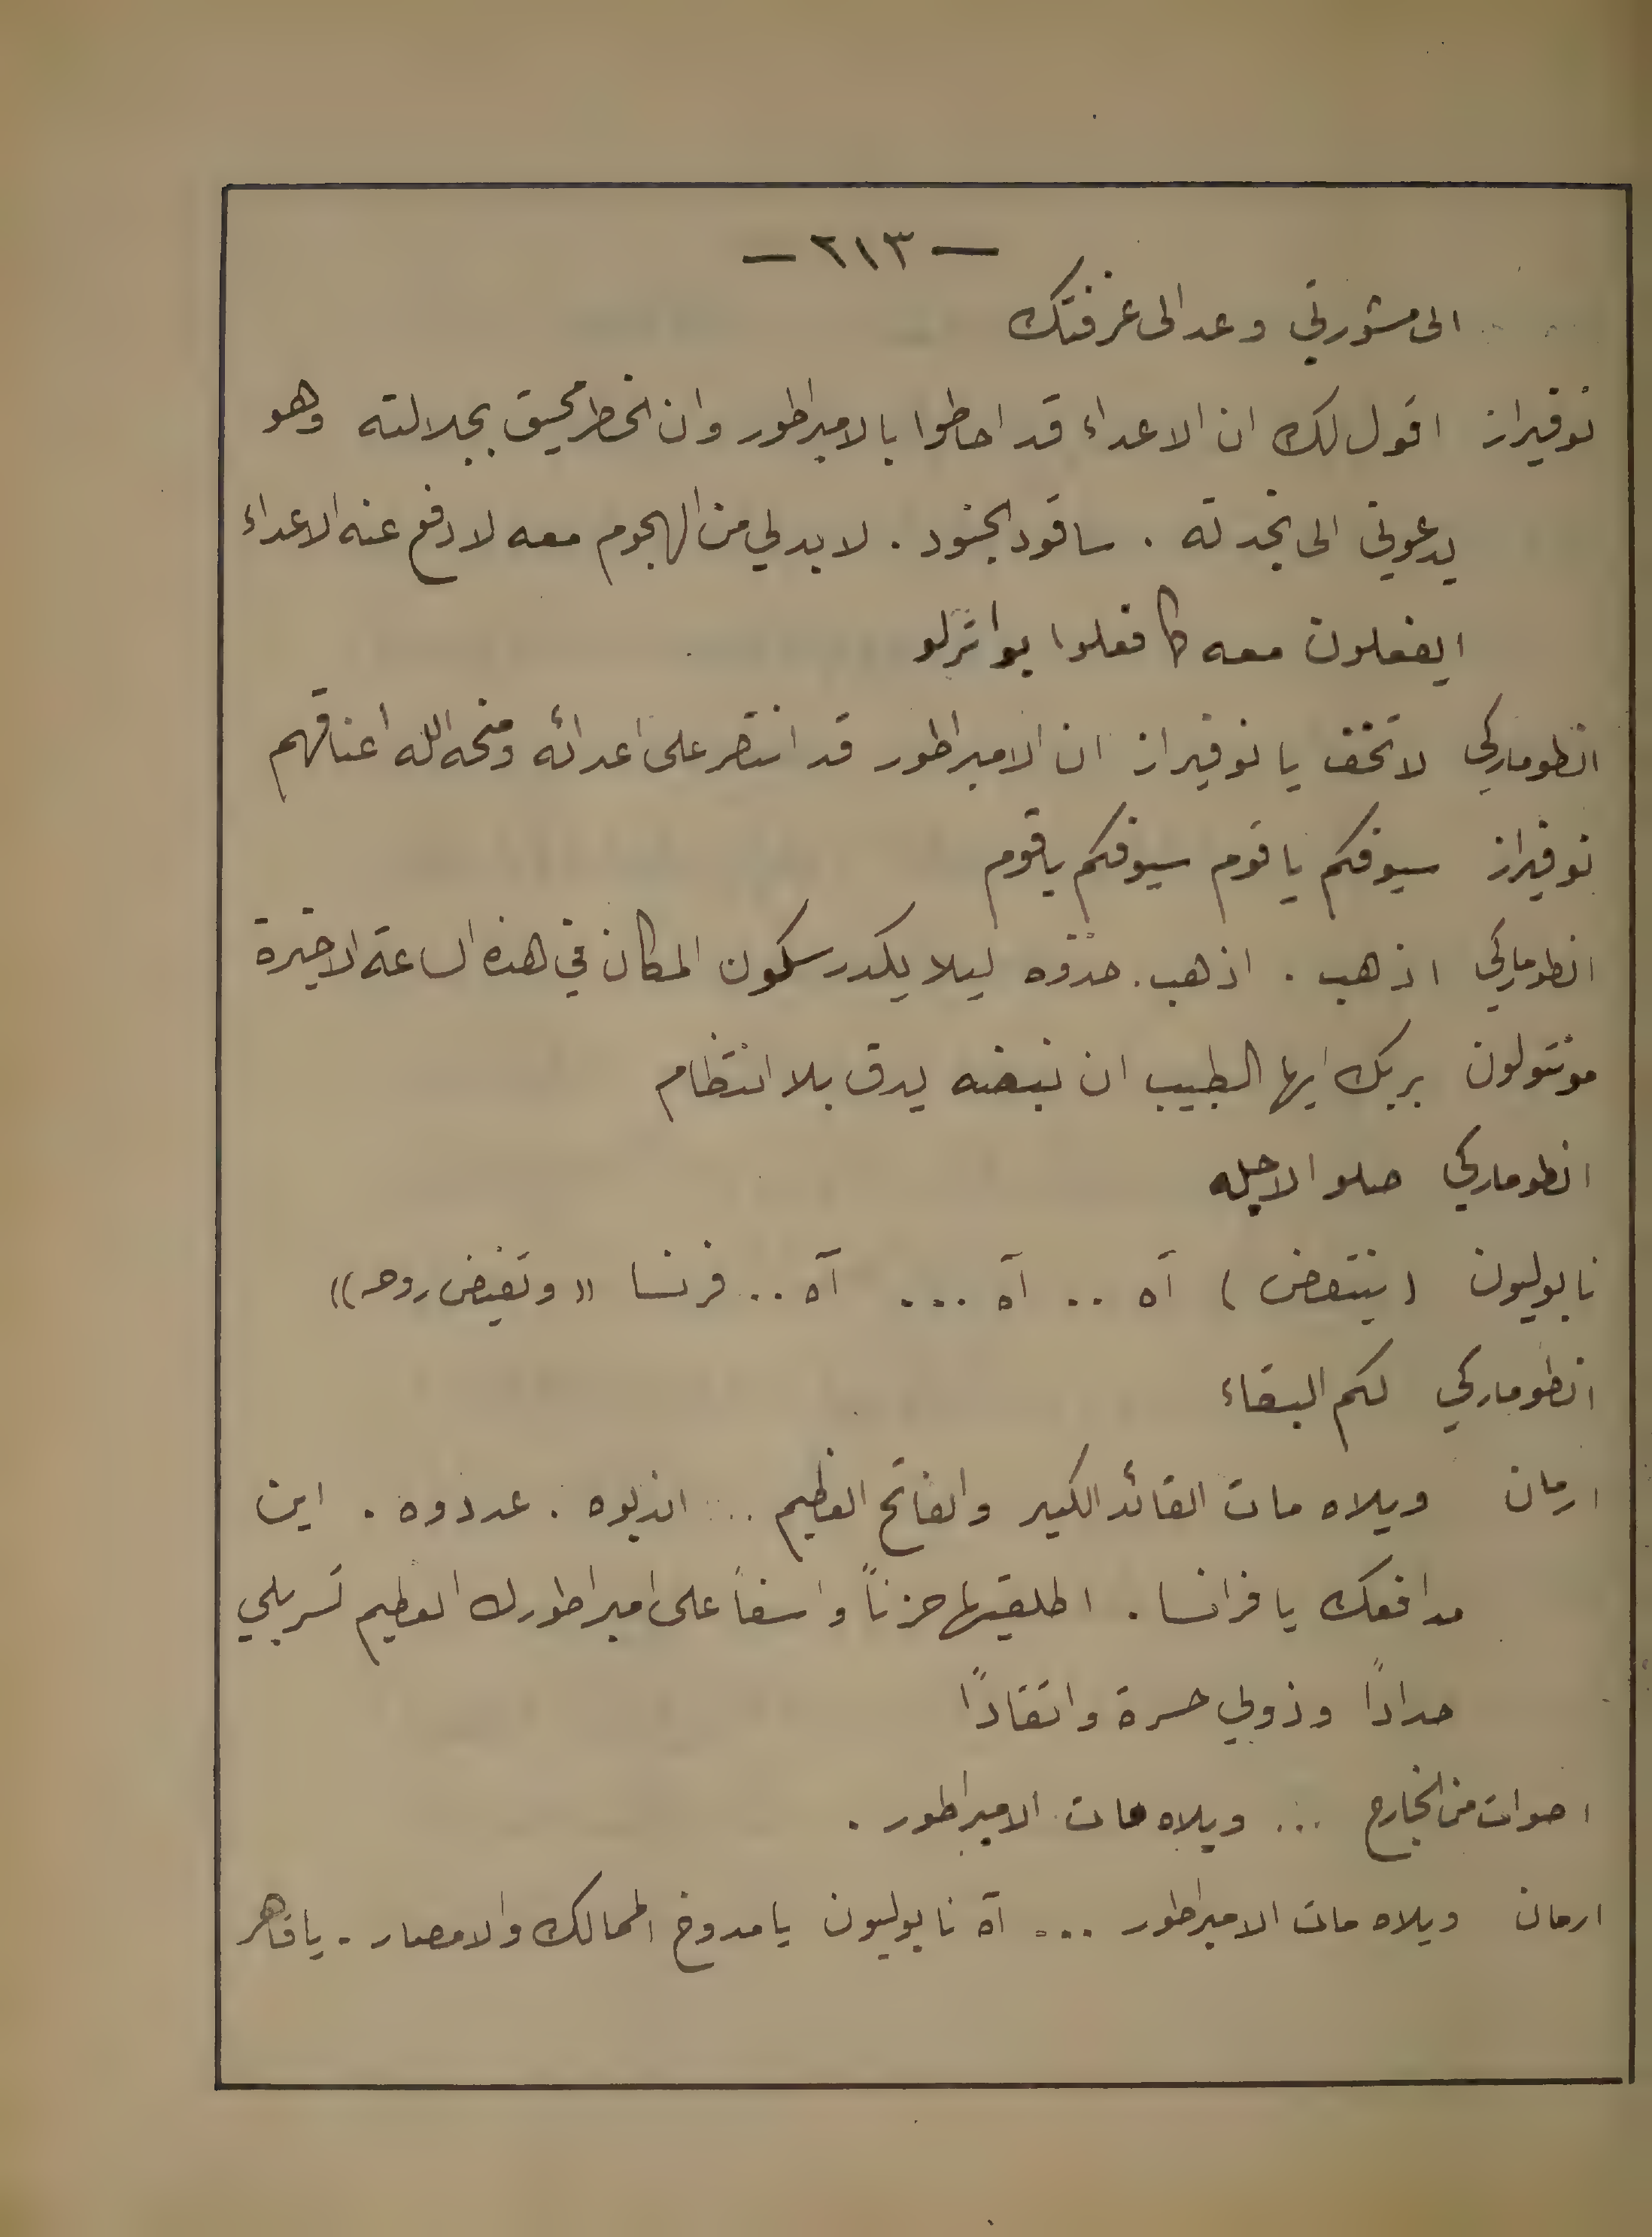 — ٢١٣ —
الى مشورتي وعد الى غرفتك
نوفيراز اقول لك ان الاعداء قد احاطوا بالامبراطور وان الخطر محيق بجلالته وهو
يدعوني الى نجدته . ساقود الجنود . لا بد لي من الهجوم معه لادفع عنه الاعداء
ايفعلون معه كما فعلوا بواترلو
انطوماركي لا تخف يا نوفيراز ان الامبراطور قد انتصر على اعدائه ومنحه الله اعناقهم
نوفيراز سيوفكم يا قوم سيوفكم يا قوم
انطوماركي اذهب . اذهب . خذوه ليلا يكدر سكون المكان في هذه الساعة الاخيرة
مونتولون بربك ايها الطبيب ان نبضه يدق بلا انتظام
انطوماركي صلوا لاجله
نابوليون (ينتفض) آه .. آه ... آه .. فرنسا «وتفيض روحه»
انطوماركي لكم البقاء
ارمان ويلاه مات القائد الكبير والفاتح العظيم ... اندبوه . عددوه . اين
مدافعك يا فرانسا . اطلقيها حزناً واسفاً على امبراطورك العظيم تسربلي
حدادًا وذوبي حسرة واتقادًا
اصوات من الخارج ... ويلاه مات الامبراطور .
ارمان ويلاه مات الامبراطور ... آه نابوليون يا مدوخ الممالك والامصار . يا قاهر